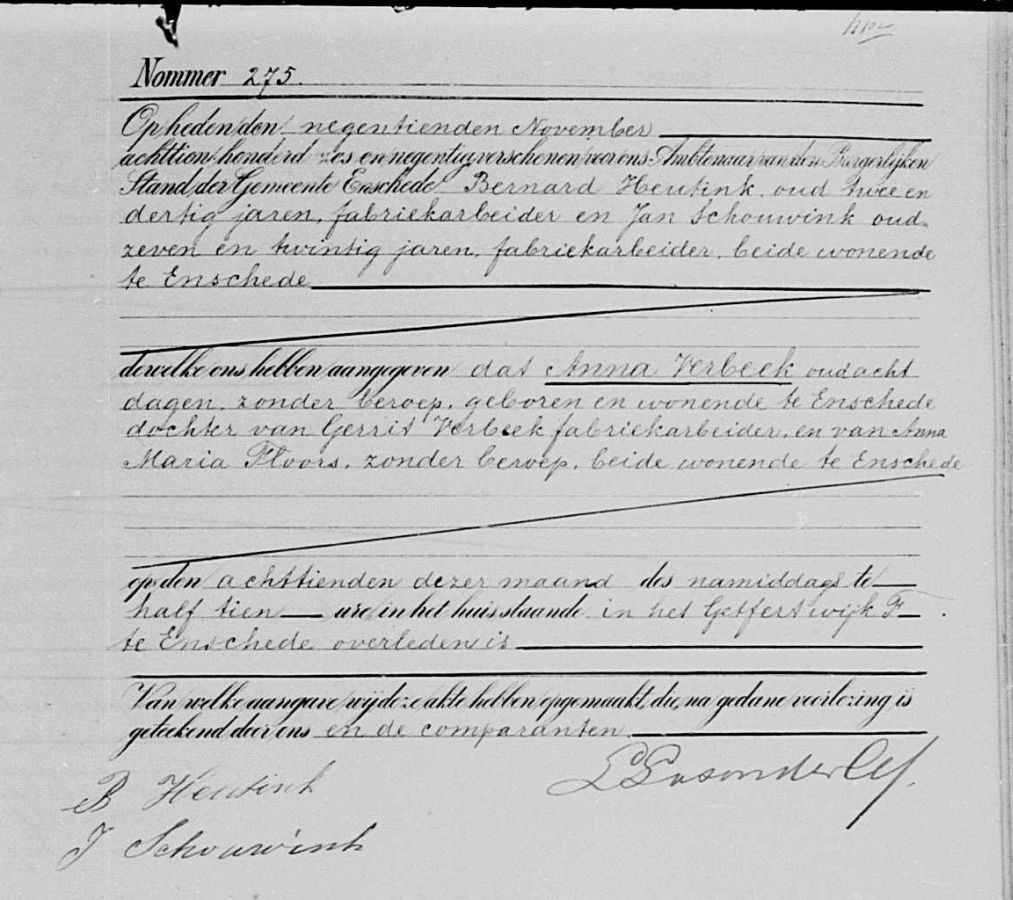 Nommer 275.
Op heden den negentienden November
achttien honderd zes en negentig verschenen voor ons Ambtenaar van den Burgerlijken
Stand der Gemeente Enschede Bernard Heutink, oud twee en
dertig jaren, fabriekarbeider en Jan Schouwink oud
zeven en twintig jaren, fabriekarbeider, beide wonende
te Enschede
dewelke ons hebben aangegeven dat Anna Verbeek oud acht
dagen, zonder beroep, geboren en wonende te Enschede
dochter van Gerrit Verbeek fabriekarbeider, en van Anna
Maria Floors, zonder beroep, beide wonende te Enschede
op den achttienden dezer maand des namiddags te
half tien ure in het huis staande in het Getfert wijk F
te Enschede overleden is
Van welke aangave wij deze akte hebben opgemaakt, die, na gedane voorlezing is
geteekend door ons en de comparanten.
B Heutink
J Schouwink